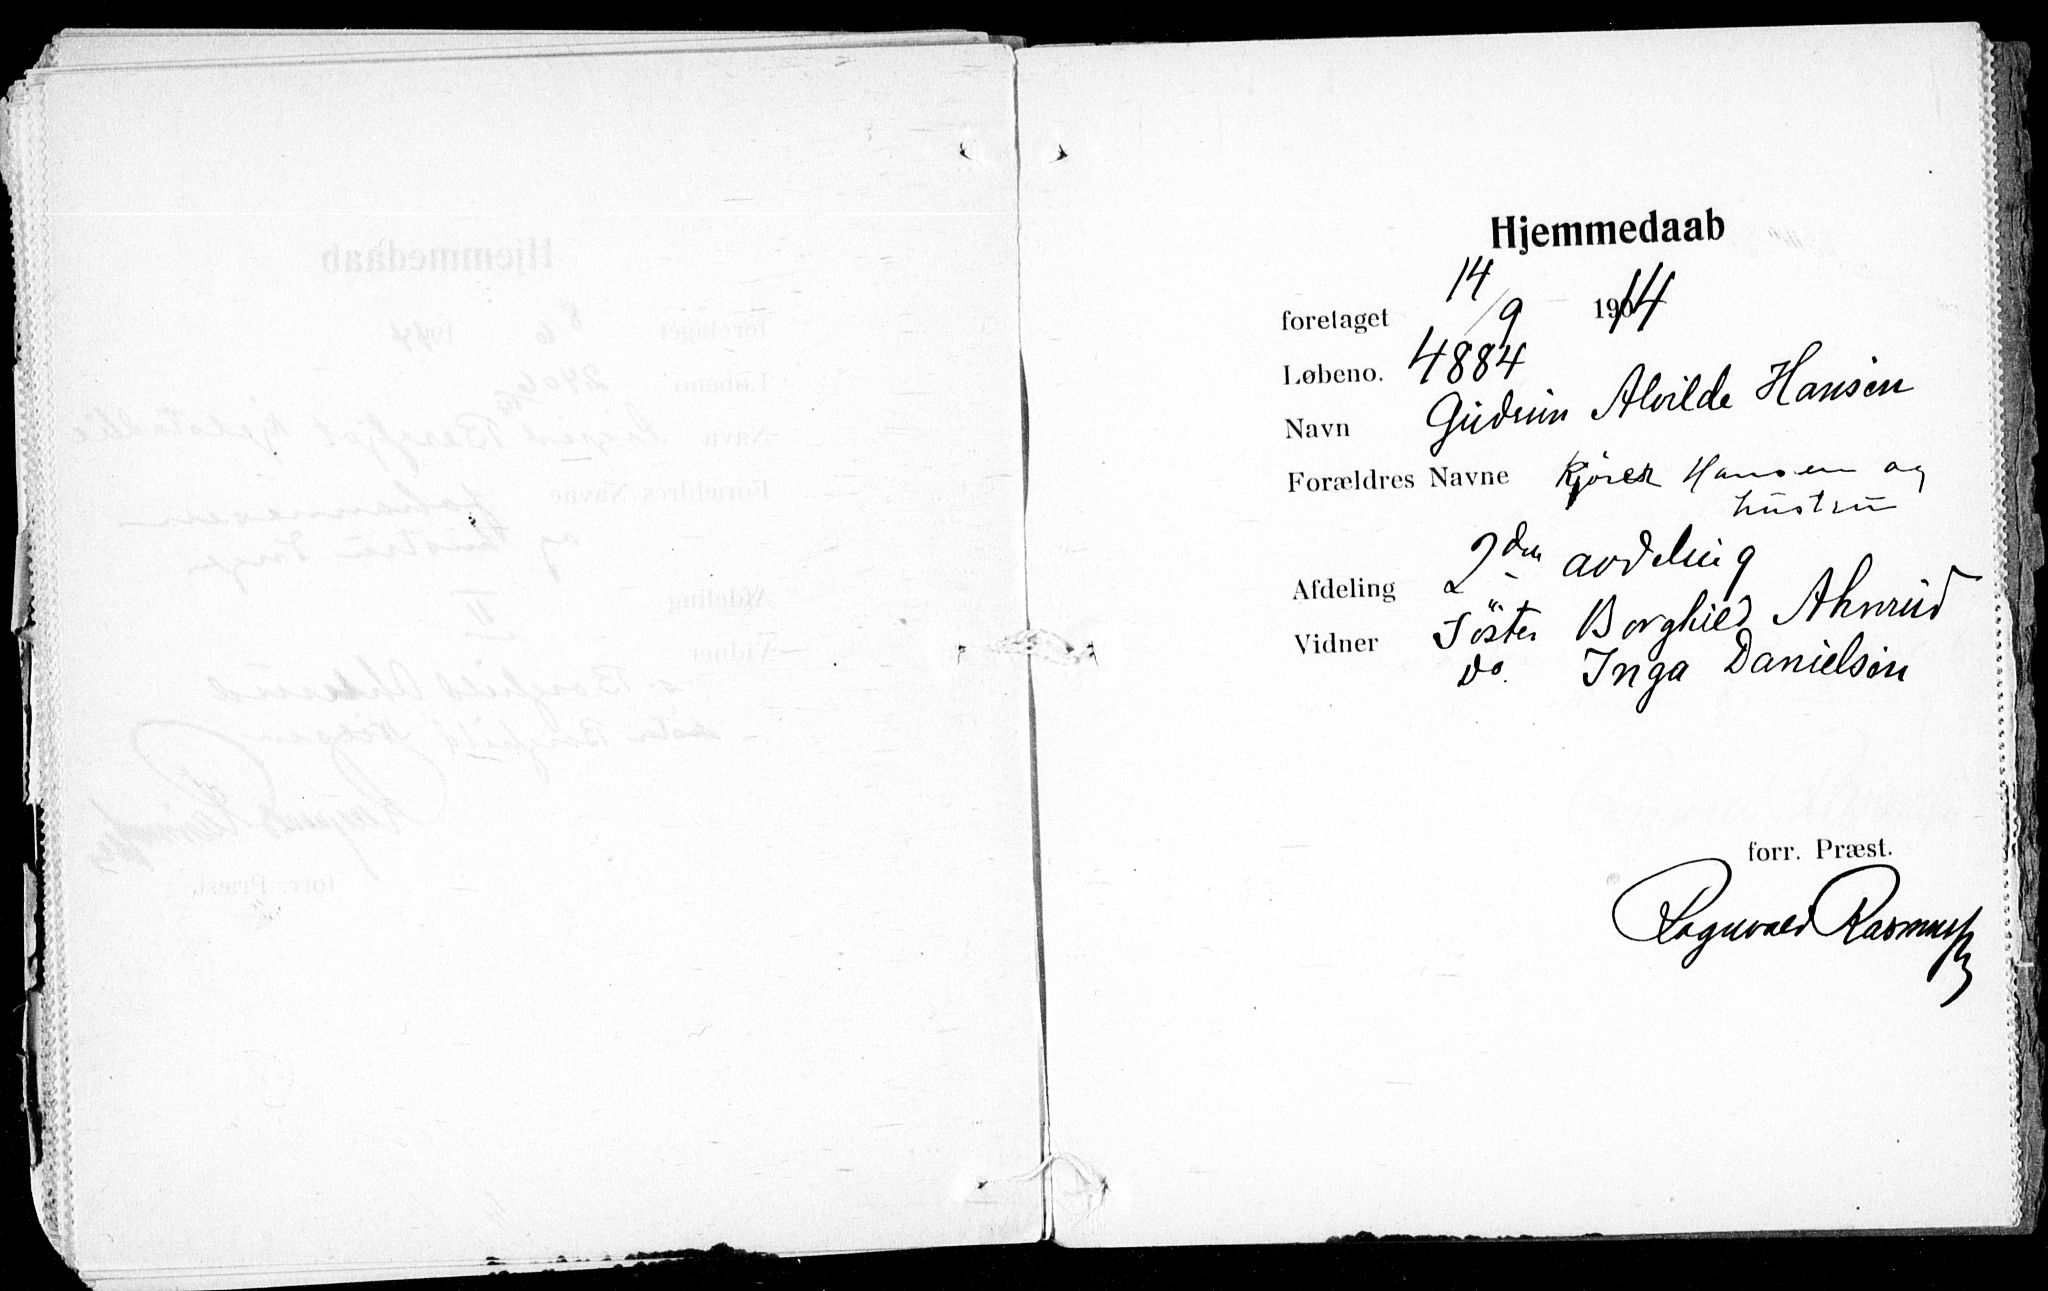 Hjemmedaab
foretaget 14/9 1914
Løbeno. 4884
Navn Gudrun Alvilde Hansen
Forældres Navne Kjører Hansen og
hustru
Afdeling 2den avdeling
Vidner Søster Borghild Ahnrud
Do. Inga Danielsen
forr. Præst.
Ragnvald Rasmussen